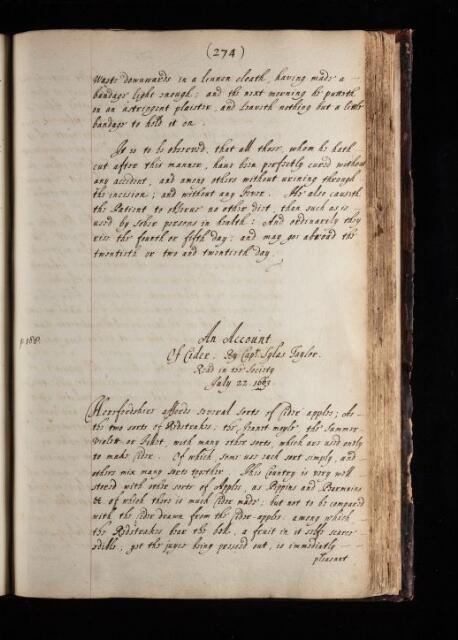 (274)
Waste downwards in a linnen cloath, having made a
bandage light enough: and the next morning he putteth
on an astringent plaister, and leaveth nothing but a little
bandage to hold it on.
It is to be observed, that all those, whom he hath
cut after this manner, have been perfectly cured without
any accident, and among others without urining through
the incision; and without any feaver. He also causeth
the Patient to observe no other diet, than such as is
used by sober persons in health: And ordinarily they
rise the fourth or fifth day: and may goe abroad the
twentieth or two and twentieth day.
An Account
Of Cider. By Capt. Sylas Taylor.
Read in the Society
July 22. 1663
Herefordshire affords several sorts of Cider apples; As
the two sorts of Redstrakes; the Jennet moyle the Summer
violett or fillet, with many other sorts, which are used only
to make Cider. Of which some use each sort simply, and
others mix many sorts together. This Country is very well
stored with other sorts of Apples, as Pippins and Pearmains
&c of which there is much Cider made; but not to be compared
with the Cider drawn from the Cider-apples. among which
the Redstrakes bear the bell, a fruit in it selfe scarce
edible; yet the juyce being pressed out, is immediatly
pleasant